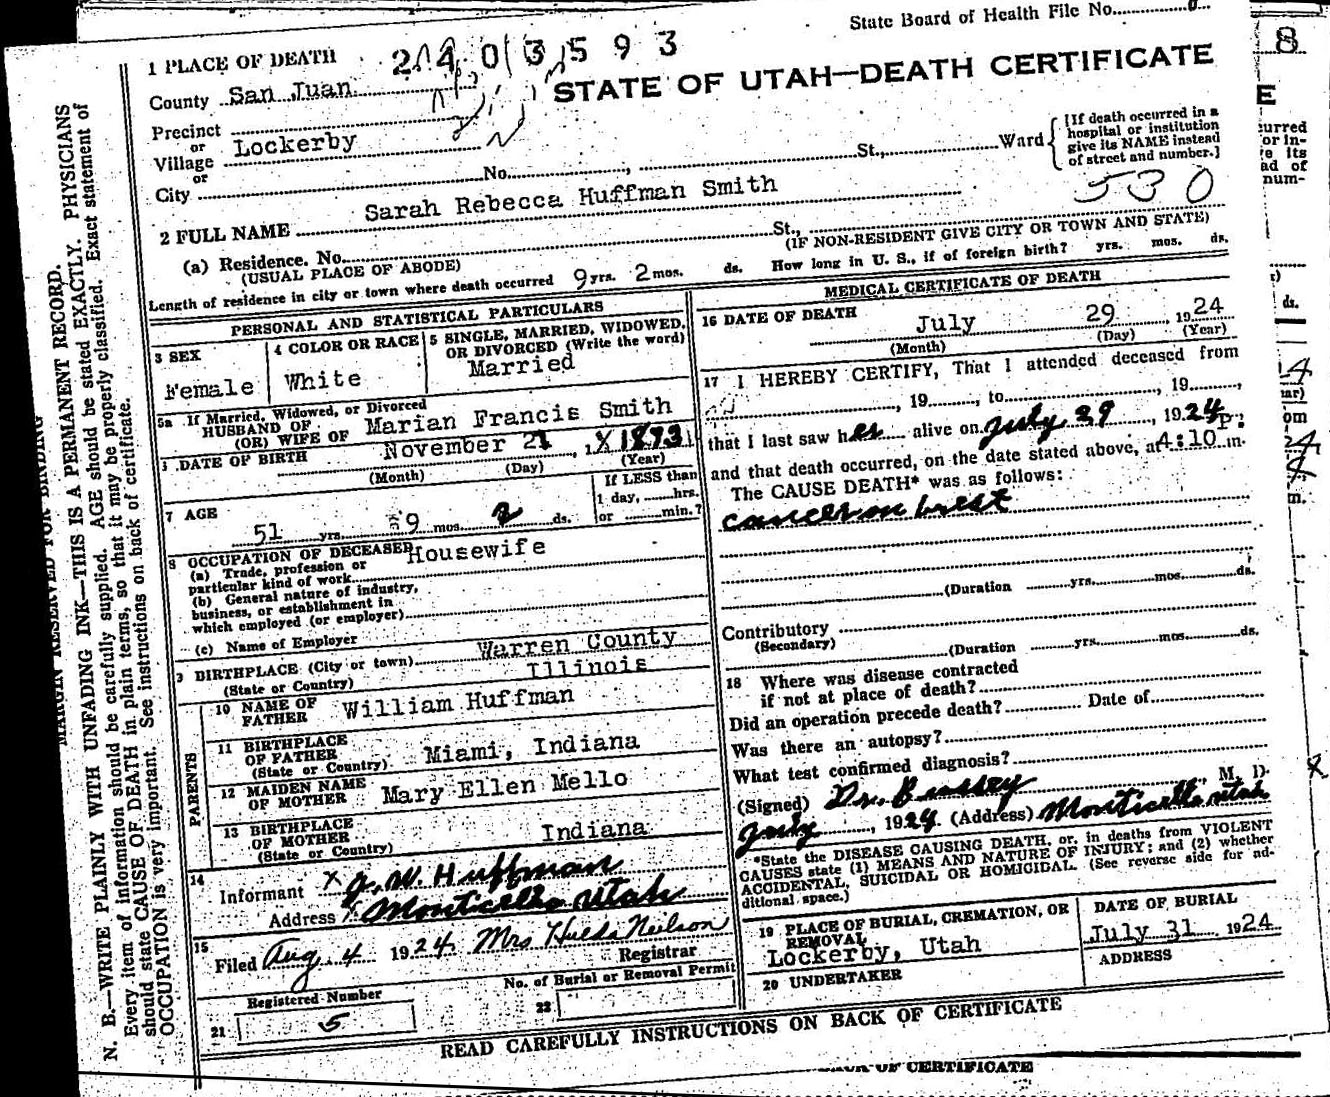 State Board of Health File No. 0
1 PLACE OF DEATH
2403593
STATE OF UTAH—DEATH CERTIFICATE
County San Juan
Precinct
or
Village Lockerby
or
City
No. St., Ward
[If death occurred in a
hospital or institution
give its NAME instead
of street and number.]
530
2 FULL NAME Sarah Rebecca Huffman Smith
(a) Residence. No. St.,
(USUAL PLACE OF ABODE)
(IF NON-RESIDENT GIVE CITY OR TOWN AND STATE)
Length of residence in city or town where death occurred 9 yrs. 2 mos. ds. How long in U. S., if of foreign birth? yrs. mos. ds.
PERSONAL AND STATISTICAL PARTICULARS
3 SEX
Female
4 COLOR OR RACE
White
5 SINGLE, MARRIED, WIDOWED,
OR DIVORCED (Write the word)
Married
5a If Married, Widowed, or Divorced
HUSBAND OF
(OR) WIFE OF Marian Francis Smith
DATE OF BIRTH November 21, 1873
(Month) (Day) (Year)
7 AGE
51 yrs. 9 mos. ds.
If LESS than
1 day, hrs.
or min.?
8 OCCUPATION OF DECEASED Housewife
(a) Trade, profession or
particular kind of work
(b) General nature of industry,
business, or establishment in
which employed (or employer)
(c) Name of Employer
9 BIRTHPLACE (City or town) Warren County
(State or Country) Illinois
PARENTS
10 NAME OF
FATHER William Huffman
11 BIRTHPLACE
OF FATHER
(State or Country) Miami, Indiana
12 MAIDEN NAME
OF MOTHER Mary Ellen Mello
13 BIRTHPLACE
OF MOTHER
(State or Country) Indiana
14
Informant X J. W. Huffman
Address Monticello Utah
15
Filed Aug. 4 1924. Mrs Hulda Neilson
Registrar
No. of Burial or Removal Permit
Registered Number
21 5
22
MEDICAL CERTIFICATE OF DEATH
16 DATE OF DEATH
July 29, 1924
(Month) (Day) (Year)
17 I HEREBY CERTIFY, That I attended deceased from
, 19, to, 19,
that I last saw her alive on July 29, 1924
and that death occurred, on the date stated above, at 4:10 P. m.
The CAUSE DEATH* was as follows:
cancer on brest
(Duration yrs. mos. ds.
Contributory
(Secondary)
(Duration yrs. mos. ds.
18 Where was disease contracted
if not at place of death?
Did an operation precede death? Date of
Was there an autopsy?
What test confirmed diagnosis?
(Signed) Dr. Bussey, M. D.
July, 1924 (Address) Monticello Utah
*State the DISEASE CAUSING DEATH, or, in deaths from VIOLENT
CAUSES state (1) MEANS AND NATURE OF INJURY; and (2) whether
ACCIDENTAL, SUICIDAL OR HOMICIDAL. (See reverse side for ad-
ditional space.)
19 PLACE OF BURIAL, CREMATION, OR
REMOVAL
Lockerby, Utah
DATE OF BURIAL
July 31 1924
20 UNDERTAKER
ADDRESS
READ CAREFULLY INSTRUCTIONS ON BACK OF CERTIFICATE
BACK OF CERTIFICATE
MARGIN RESERVED FOR BINDING
N. B.—WRITE PLAINLY WITH UNFADING INK—THIS IS A PERMANENT RECORD.
Every item of information should be carefully supplied. AGE should be stated EXACTLY. PHYSICIANS
should state CAUSE OF DEATH in plain terms, so that it may be properly classified. Exact statement of
OCCUPATION is very important. See instructions on back of certificate.
8
E
curred
or in-
e its
ad of
num-
ds.